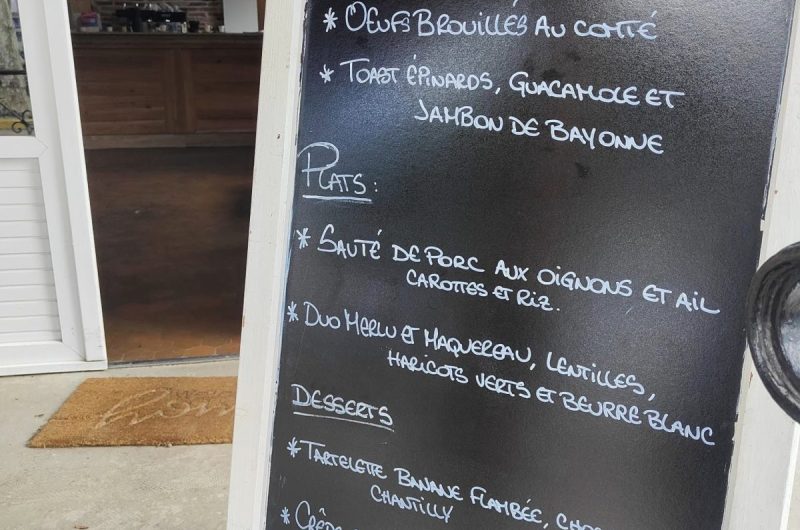 * Oeufs Brouillés au comté
* Toast épinards, Guacamole et
Jambon de Bayonne
Plats :
* Sauté de porc aux oignons et ail
carottes et riz.
* Duo Merlu et Maquereau, lentilles,
haricots verts et beurre blanc
Desserts
* Tartelette Banane Flambée,
chantilly
* Crêpe
home